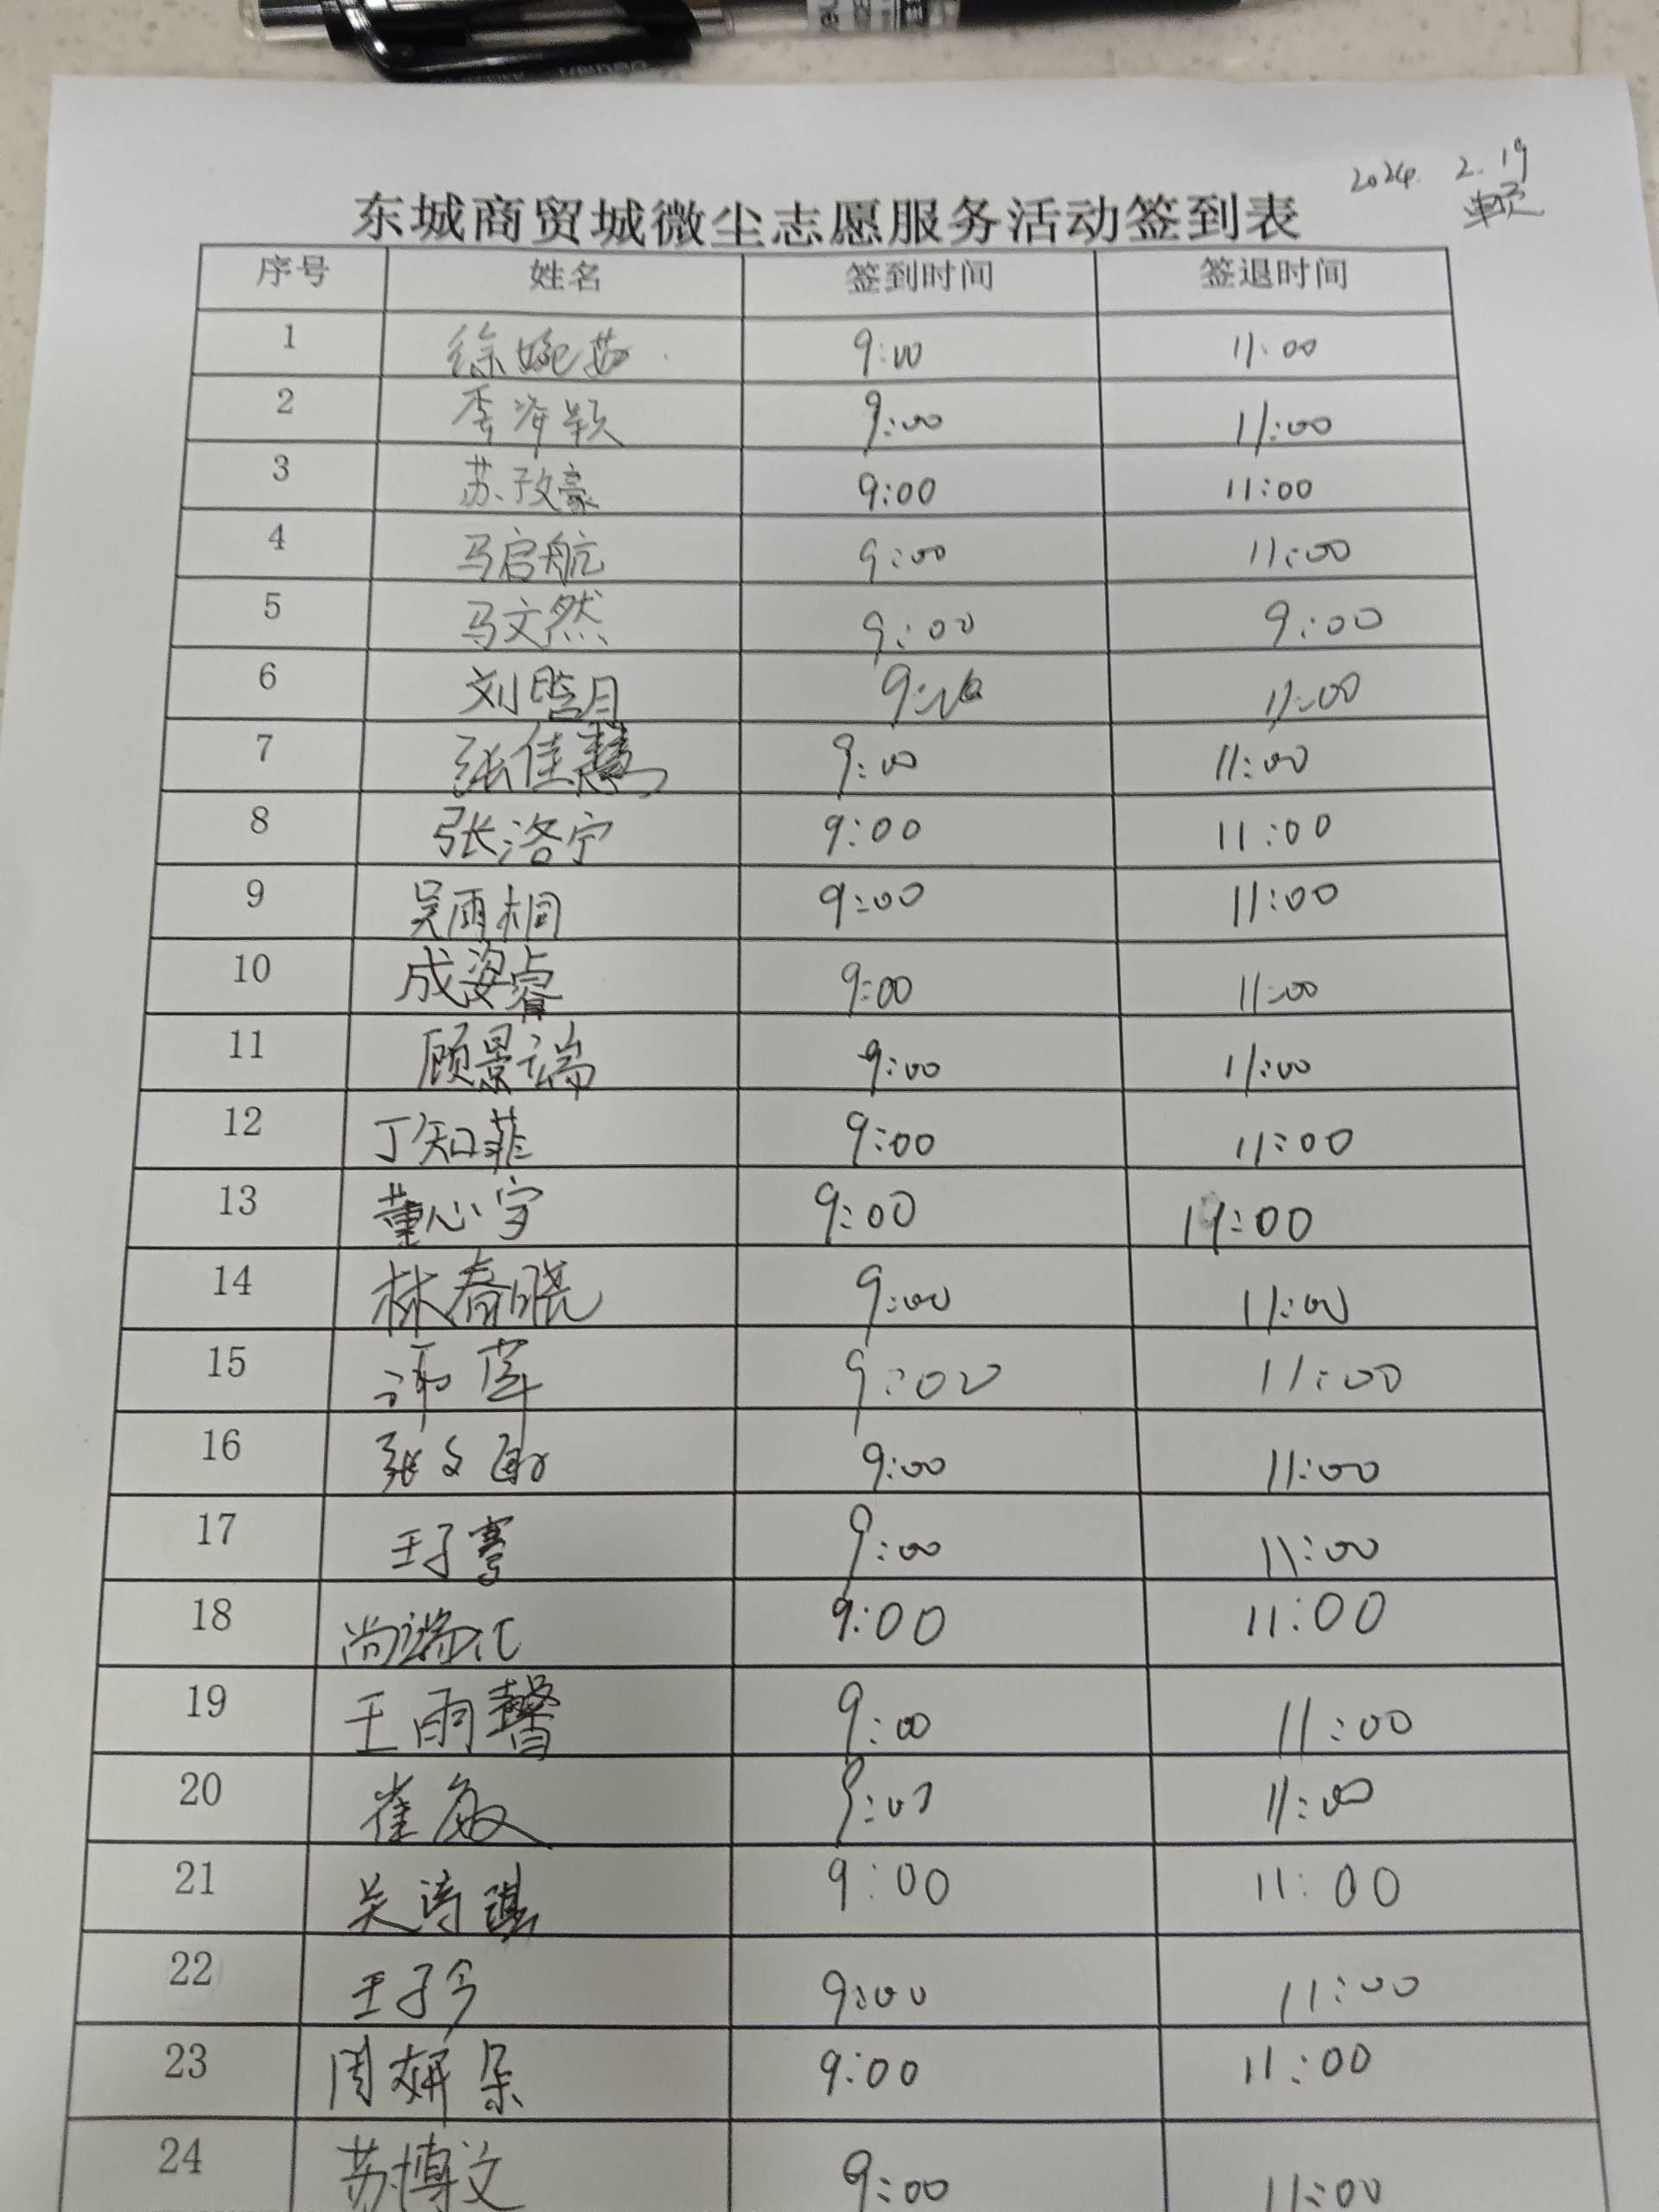 2024. 2.19
东城商贸城微尘志愿服务活动签到表
序号 姓名 签到时间 签退时间
1 徐婉茹 9:00 11:00
2 李海颖 9:00 11:00
3 苏孜豪 9:00 11:00
4 马启航 9:00 11:00
5 马文然 9:00 9:00
6 刘晗月 9:00 11:00
7 张佳慧 9:00 11:00
8 张洛宁 9:00 11:00
9 吴雨桐 9:00 11:00
10 成姿睿 9:00 11:00
11 顾景端 9:00 11:00
12 丁知菲 9:00 11:00
13 董心宇 9:00 19:00
14 林春晓 9:00 11:00
15 9:00 11:00
16 张文 9:00 11:00
17 王子骞 9:00 11:00
18 尚瑞汇 9:00 11:00
19 王雨馨 9:00 11:00
20 崔敏 9:00 11:00
21 吴诗琪 9:00 11:00
22 王子今 9:00 11:00
23 周妍朵 9:00 11:00
24 苏博文 9:00 11:00